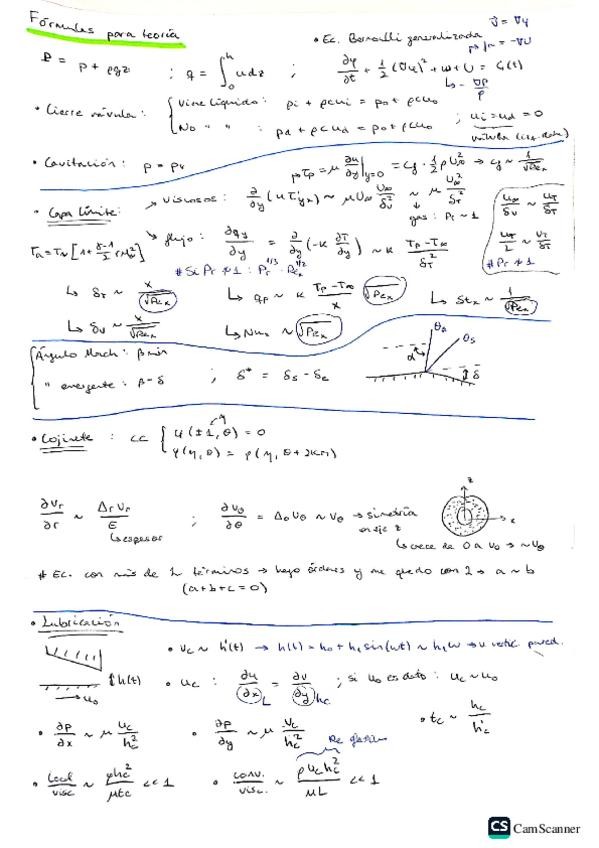 Fórmulas para teoría
• Ec. Bernoulli generalizada
v̄ = ∇φ
P = p + ρgz ; q = ∫₀ʰ u dz ; ∂φ/∂t + 1/2 (∇φ)² + w + U = G(t)
• Cierre válvula: { Viene líquido: pi + ρcui = po + ρcuo
{ No " " : pd + ρcud = po + ρcuo ; ui = ud = 0
• Cavitación: p = pv
τp = μ ∂u/∂y|y=0 = cf · 1/2 ρU∞² → cf ~ 1/√Rex
• Capa límite:
→ Viscosos: ∂/∂y (μ τ'yx) ~ μU∞ U∞/δv² ~ μ U∞²/δT²
gas: Pr ~ 1
Ta = T∞ [1 + γ-1/2 r M∞²]
→ flujo: ∂qy/∂y = ∂/∂y (-κ ∂T/∂y) ~ κ Tp - T∞/δT²
# Si Pr ≁ 1: Pr^1/3 · Rex^1/2
# Pr ≁ 1
↳ δT ~ x/√Rex
↳ qp ~ κ Tp - T∞/x √Rex
↳ Stx ~ 1/√Rex
↳ δv ~ x/√Rex
↳ Nux ~ √Rex
{ Ángulo Mach: βmin
{ " emergente: β - δ ; δ* = δs - δe
θa
θs
α
δ
• Cojinete: cc { φ(±1, θ) = 0
{ φ(η, θ) = φ(η, θ + 2kπ)
∂vr/∂r ~ Δr vr/ε ; ∂vθ/∂θ = Δθ vθ ~ vθ → simetría en eje z
↳ espesor
↳ crece de 0 a vθ → ~ vθ
# Ec. con más de 2 términos → hago órdenes y me quedo con 2 → a ~ b
(a + b + c = 0)
• Lubricación
• vc ~ h'(t) → h(t) = ho + h1 sin(ωt) ~ h1 ω → v vertic. pared.
↕h(t)
→ uo
• uc: ∂u/∂x L = ∂v/∂y hc ; si uo es dato: uc ~ uo
• ∂p/∂x ~ μ uc/hc²
• ∂p/∂y ~ μ vc/hc²
• tc ~ hc/h'c
• local/visc ~ ρhc²/μtc << 1
• conv./visc. ~ ρuchc²/μL << 1
CS CamScanner